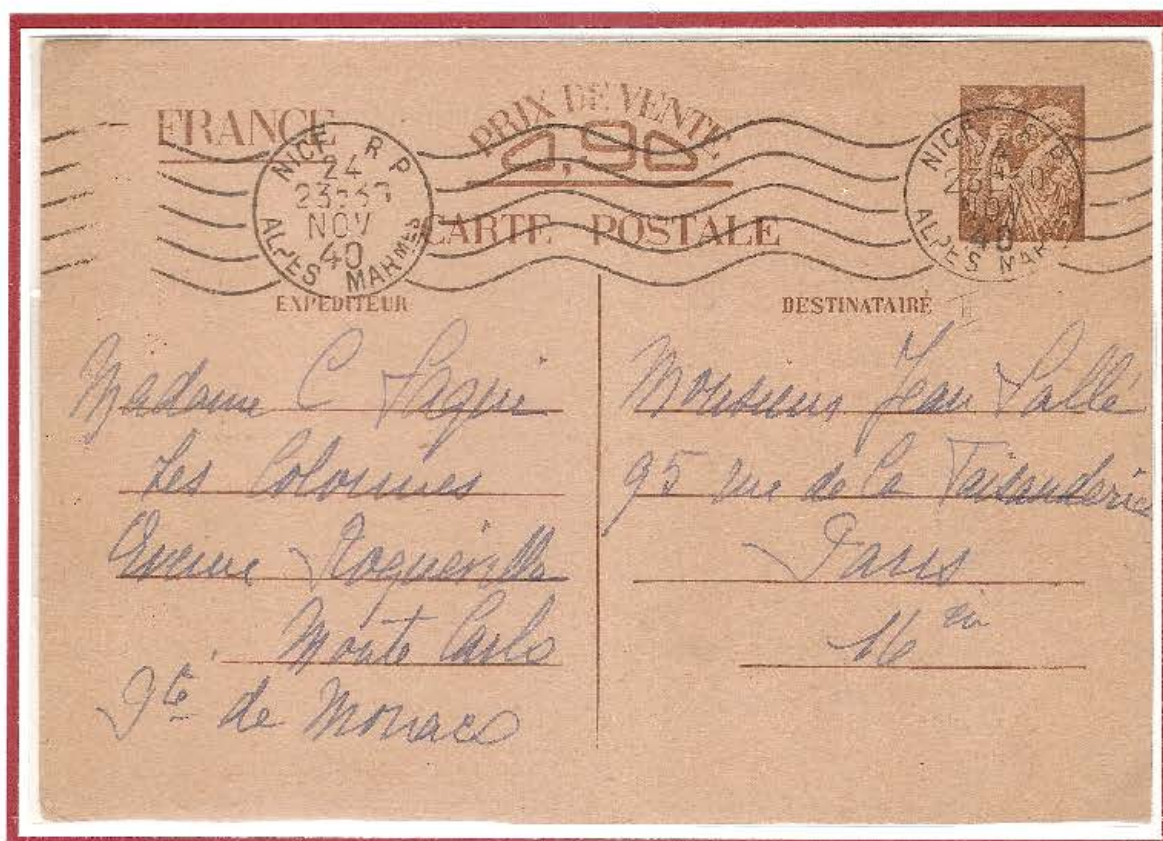 FRANCE
PRIX DE VENTE
0,90
CARTE POSTALE
NICE R P
24
NOV
40
ALPES MARMES
NICE R P
40
ALPES MAR
EXPÉDITEUR
Madame C
Les Colonnes
Avenue Roqueville
Monte Carlo
Pté de Monaco
DESTINATAIRE
Monsieur Jean Sallé
95 rue de la Faisanderie
Paris
16